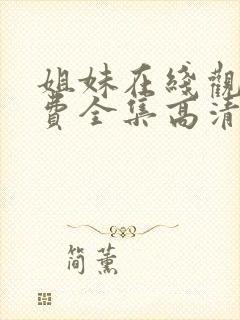 姐妹在綫觀
費全集高清
简薰